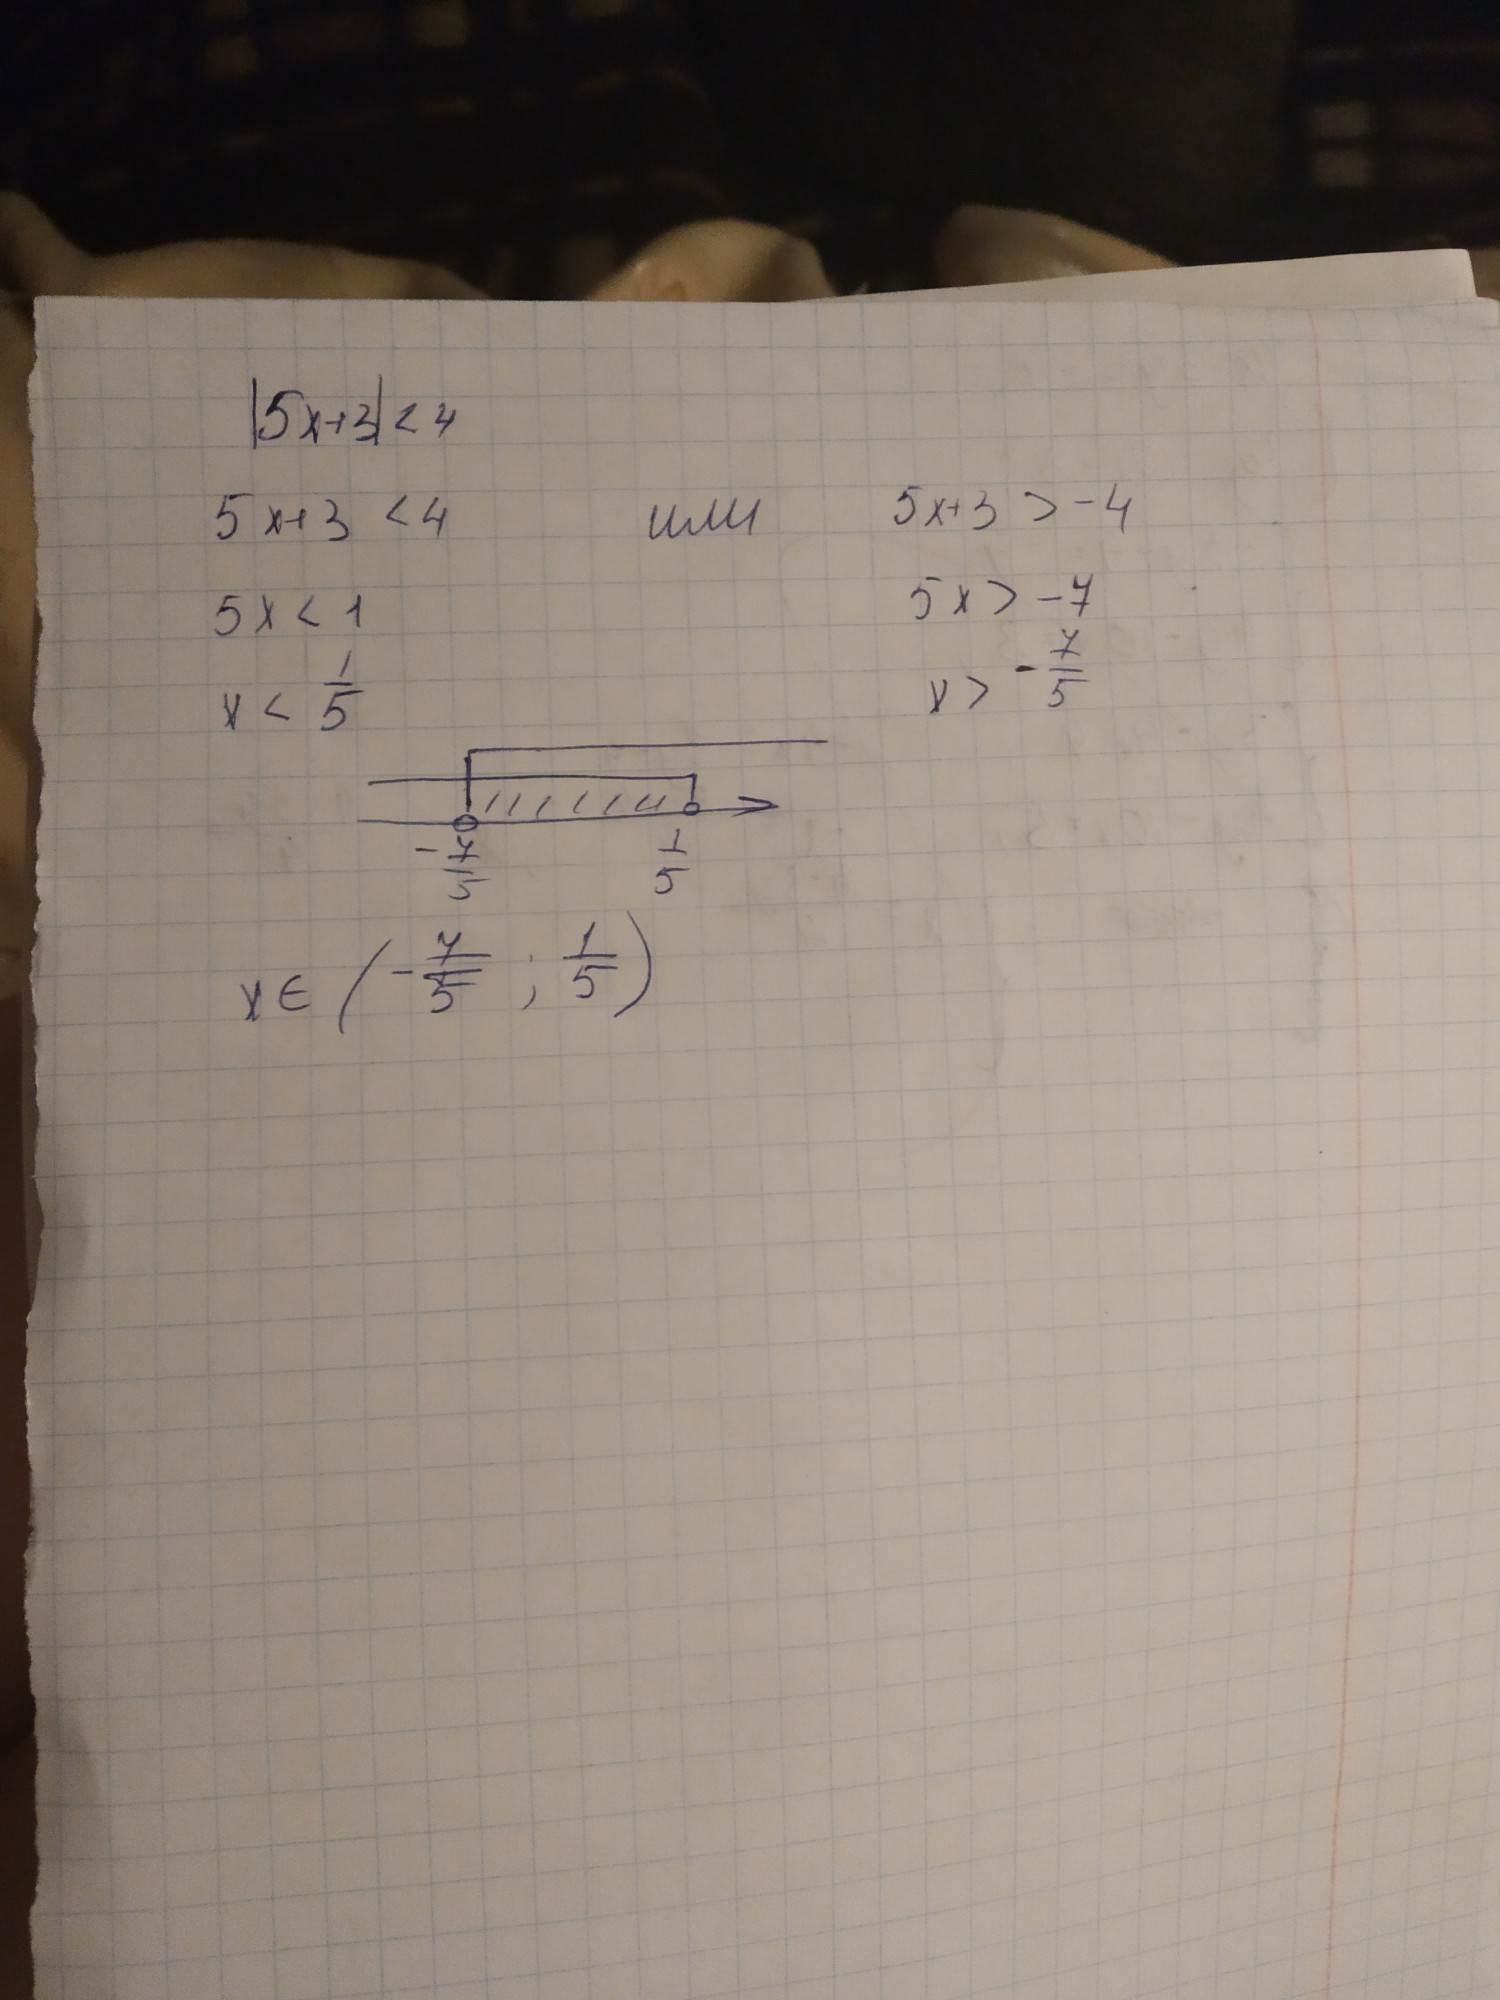 |5x+3| < 4
5x+3 < 4 или 5x+3 > -4
5x < 1 5x > -7
x < 1/5 x > -7/5
-7/5 1/5
x ∈ (-7/5 ; 1/5)